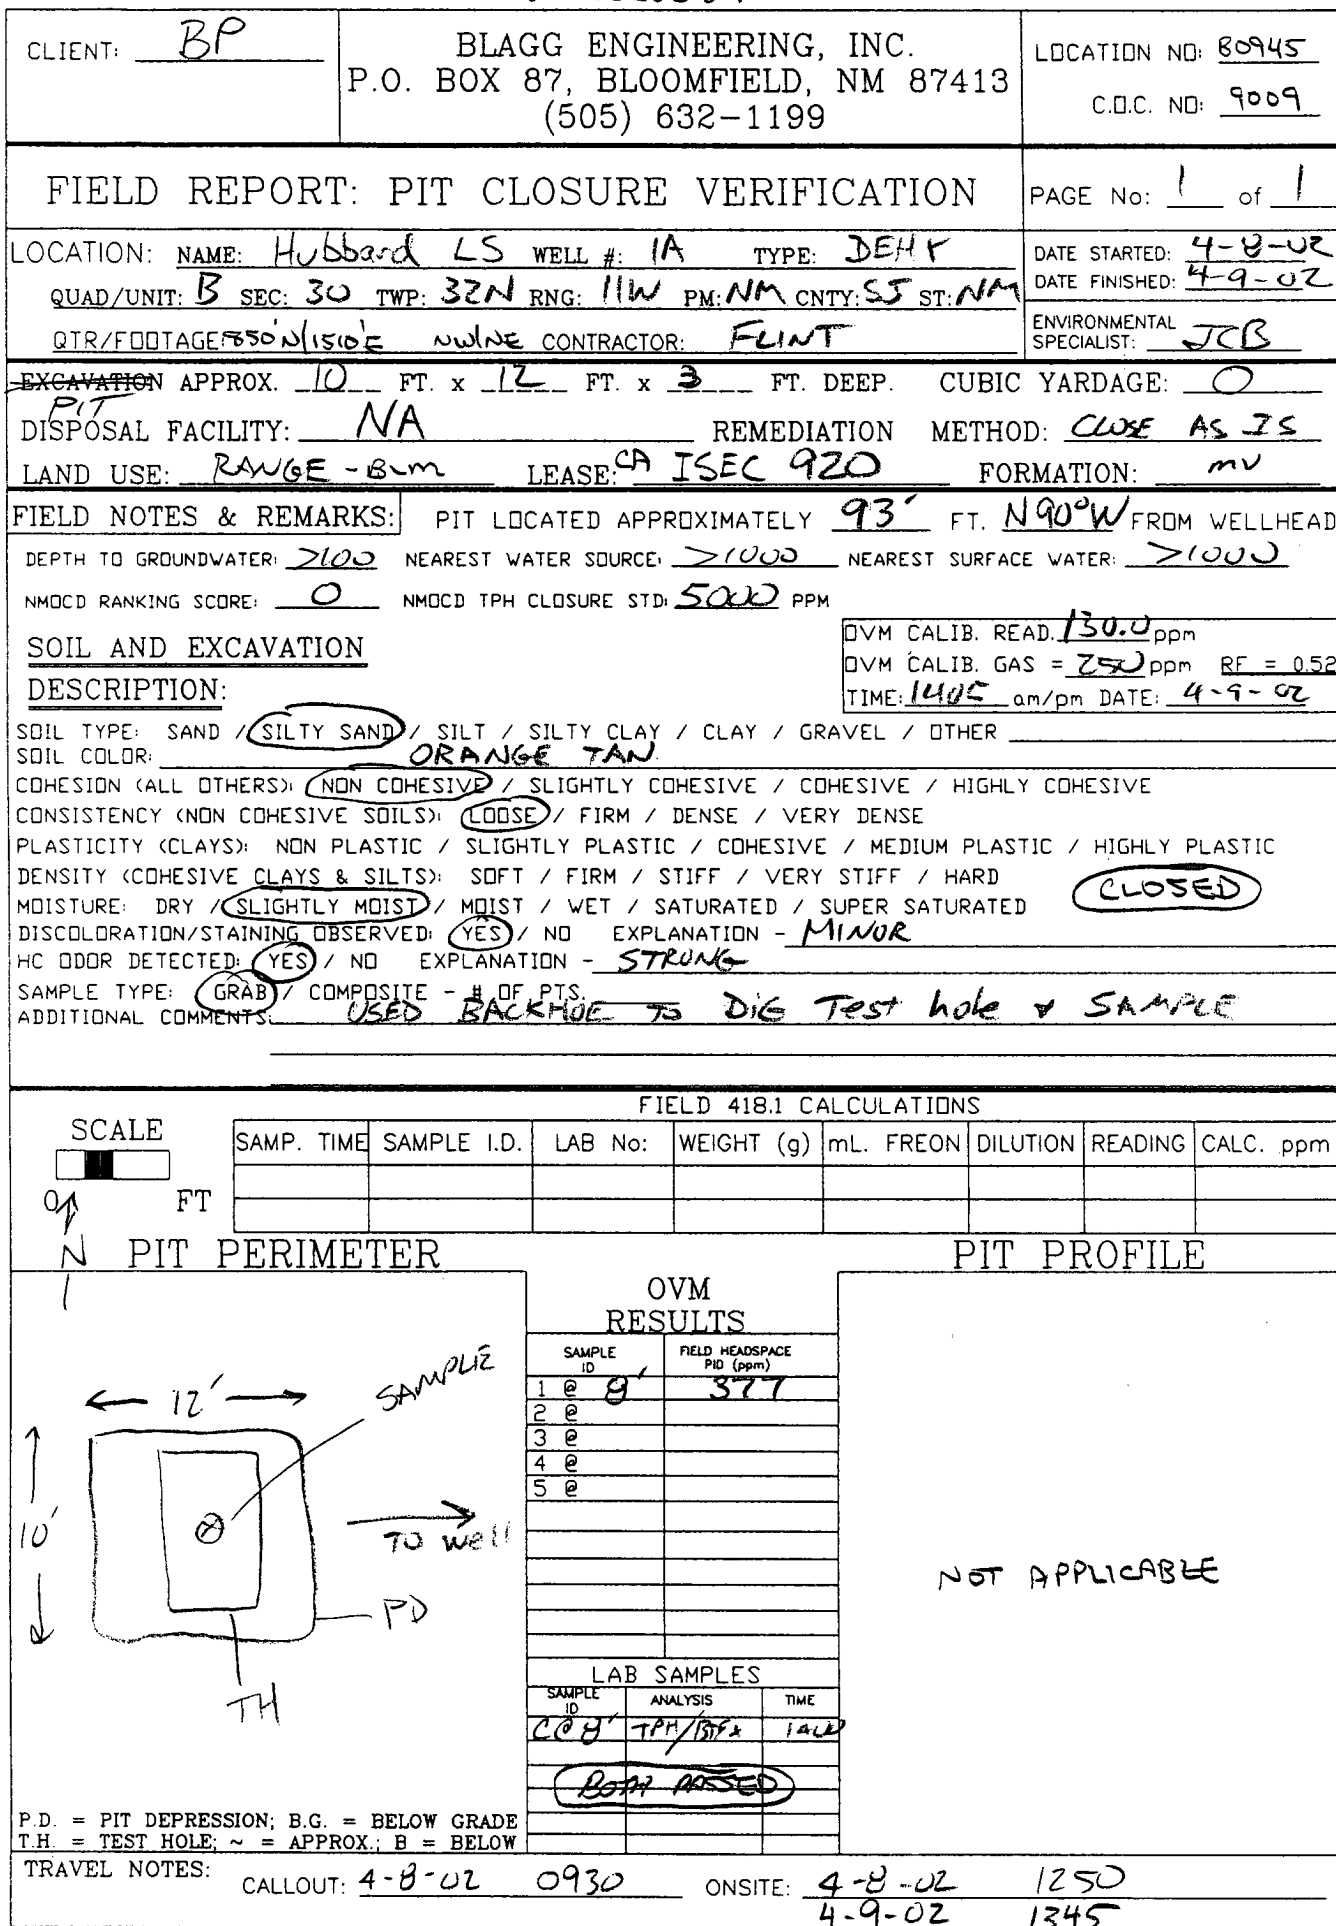 CLIENT: BP
BLAGG ENGINEERING, INC.
P.O. BOX 87, BLOOMFIELD, NM 87413
(505) 632-1199
LOCATION NO: B0945
C.O.C. NO: 9009
FIELD REPORT: PIT CLOSURE VERIFICATION
PAGE No: 1 of 1
LOCATION: NAME: Hubbard LS WELL #: 1A TYPE: DEHY
QUAD/UNIT: B SEC: 30 TWP: 32N RNG: 11W PM: NM CNTY: SJ ST: NM
QTR/FOOTAGE: 850'N/1510'E NW/NE CONTRACTOR: FLINT
DATE STARTED: 4-8-02
DATE FINISHED: 4-9-02
ENVIRONMENTAL
SPECIALIST: JCB
EXCAVATION APPROX. 10 FT. x 12 FT. x 3 FT. DEEP. CUBIC YARDAGE: 0
PIT
DISPOSAL FACILITY: NA REMEDIATION METHOD: CLOSE AS IS
LAND USE: RANGE - BLM LEASE: CA ISEC 920 FORMATION: MV
FIELD NOTES & REMARKS: PIT LOCATED APPROXIMATELY 93' FT. N90°W FROM WELLHEAD
DEPTH TO GROUNDWATER: >100 NEAREST WATER SOURCE: >1000 NEAREST SURFACE WATER: >1000
NMOCD RANKING SCORE: 0 NMOCD TPH CLOSURE STD: 5000 PPM
SOIL AND EXCAVATION
DESCRIPTION:
OVM CALIB. READ. 130.0 ppm
OVM CALIB. GAS = 250 ppm RF = 0.52
TIME: 1405 am/pm DATE: 4-9-02
SOIL TYPE: SAND / SILTY SAND / SILT / SILTY CLAY / CLAY / GRAVEL / OTHER
SOIL COLOR: ORANGE TAN
COHESION (ALL OTHERS): NON COHESIVE / SLIGHTLY COHESIVE / COHESIVE / HIGHLY COHESIVE
CONSISTENCY (NON COHESIVE SOILS): LOOSE / FIRM / DENSE / VERY DENSE
PLASTICITY (CLAYS): NON PLASTIC / SLIGHTLY PLASTIC / COHESIVE / MEDIUM PLASTIC / HIGHLY PLASTIC
DENSITY (COHESIVE CLAYS & SILTS): SOFT / FIRM / STIFF / VERY STIFF / HARD
CLOSED
MOISTURE: DRY / SLIGHTLY MOIST / MOIST / WET / SATURATED / SUPER SATURATED
DISCOLORATION/STAINING OBSERVED: YES / NO EXPLANATION - MINOR
HC ODOR DETECTED: YES / NO EXPLANATION - STRONG
SAMPLE TYPE: GRAB / COMPOSITE - # OF PTS.
ADDITIONAL COMMENTS: USED BACKHOE TO DIG Test hole & SAMPLE
FIELD 418.1 CALCULATIONS
SCALE
0 FT
N
SAMP. TIME SAMPLE I.D. LAB No: WEIGHT (g) mL. FREON DILUTION READING CALC. ppm
PIT PERIMETER
PIT PROFILE
OVM
RESULTS
SAMPLE ID FIELD HEADSPACE PID (ppm)
1 @ 8' 377
2 @
3 @
4 @
5 @
SAMPLE
12'
10'
TO well
PD
TH
NOT APPLICABLE
LAB SAMPLES
SAMPLE ID ANALYSIS TIME
C@8' TPH/BTEX
BOTH PASSED
P.D. = PIT DEPRESSION; B.G. = BELOW GRADE
T.H. = TEST HOLE; ~ = APPROX.; B = BELOW
TRAVEL NOTES: CALLOUT: 4-8-02 0930 ONSITE: 4-8-02 1250
4-9-02 1345